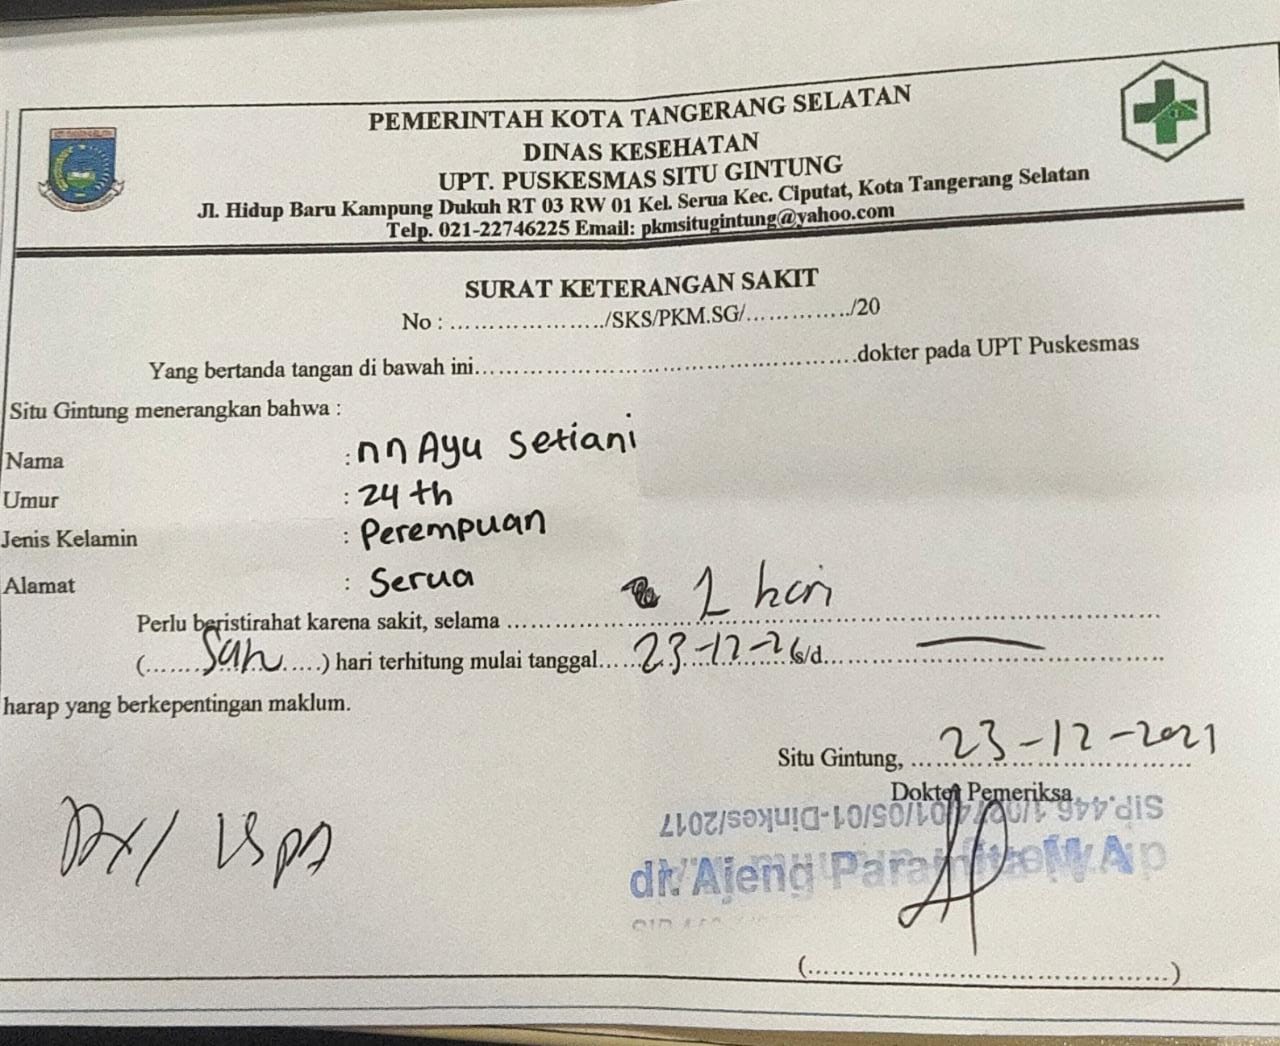 PEMERINTAH KOTA TANGERANG SELATAN
DINAS KESEHATAN
UPT. PUSKESMAS SITU GINTUNG
Jl. Hidup Baru Kampung Dukuh RT 03 RW 01 Kel. Serua Kec. Ciputat, Kota Tangerang Selatan
Telp. 021-22746225 Email: pkmsitugintung@yahoo.com
SURAT KETERANGAN SAKIT
No : ...................../SKS/PKM.SG/............../20
Yang bertanda tangan di bawah ini......................................................dokter pada UPT Puskesmas
Situ Gintung menerangkan bahwa :
Nama : nn Ayu Setiani
Umur : 24 th
Jenis Kelamin : Perempuan
Alamat : Serua
Perlu beristirahat karena sakit, selama 1 hari
(.............) hari terhitung mulai tanggal... 23-12- s/d...
harap yang berkepentingan maklum.
Situ Gintung, 23-12-2021
Dokter Pemeriksa
dr. Ajeng
(..........................................)